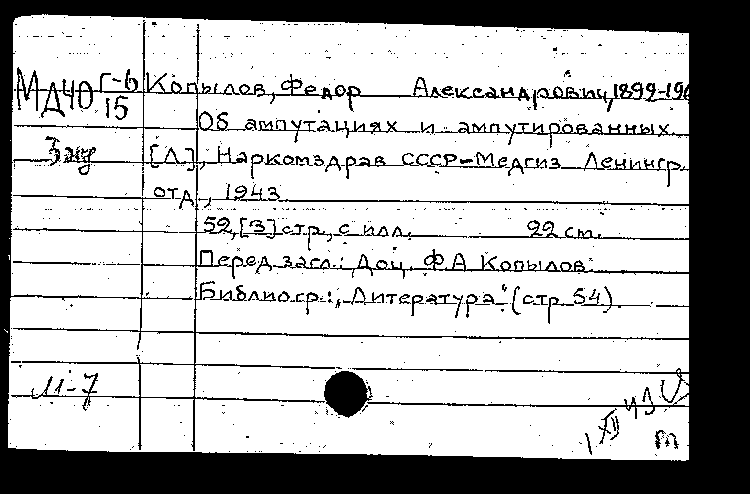 МД40 Г-6/15 Копылов, Федор Александрович, 1899-196
Об ампутациях и ампутированных.
3 экз [Л.], Наркомздрав СССР-Медгиз Ленингр.
отд., 1943.
52, [3] стр., с илл. 22 см.
Перед загл.: Доц. Ф.А Копылов.
Библиогр.: "Литература" (стр. 54).
М-7
1 XII 43
m